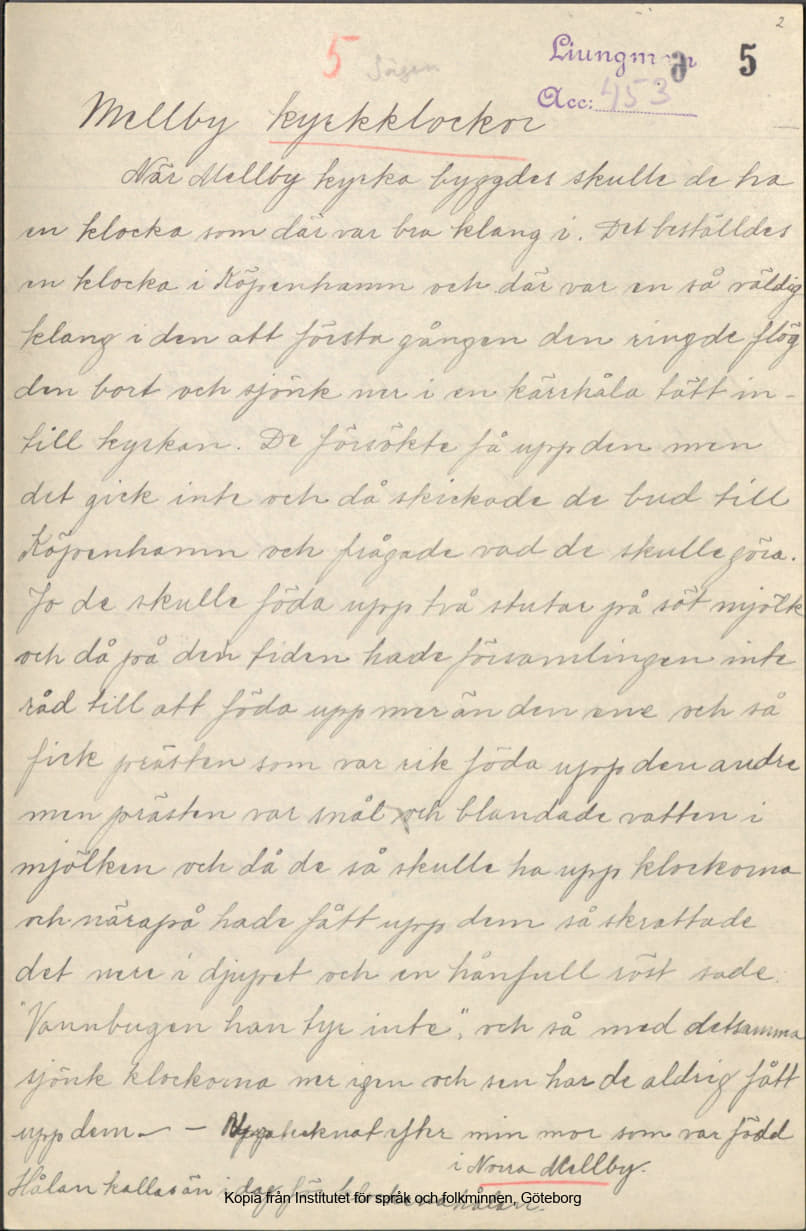 2
5 Sägen Liungman 5
Acc: 453
Mellby kyrkklockor
När Mellby kyrka byggdes skulle de ha
en klocka som där var bra klang i. Det beställdes
en klocka i Köpenhamn och där var en så väldig
klang i den att första gången den ringde flög
den bort och sjönk ner i en kärrhåla tätt in-
till kyrkan. De försökte få upp den men
det gick inte och då skickade de bud till
Köpenhamn och frågade vad de skulle göra.
Jo de skulle föda upp två stutar på söt mjölk
och då på den tiden hade församlingen inte
råd till att föda upp mer än den ene och så
fick prästen som var rik föda upp den andre
men prästen var snål och blandade vatten i
mjölken och då de så skulle ha upp klockorna
och närapå hade fått upp dem så skrattade
det nere i djupet och en hånfull röst sade:
"Vannbugen han tyr inte", och så med detsamma
sjönk klockorna ner igen och sen har de aldrig fått
upp dem. – Upptecknat efter min mor som var född
i Norra Mellby.
Hålan kallas än i dag för
Kopia från Institutet för språk och folkminnen, Göteborg